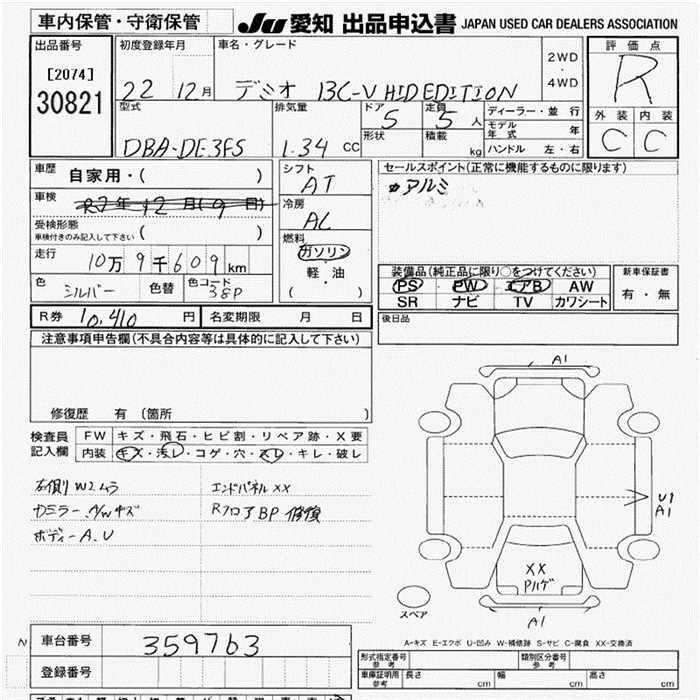 車内保管・守衛保管
JU 愛知 出品申込書 JAPAN USED CAR DEALERS ASSOCIATION
出品番号
[2074]
30821
初度登録年月
22 12月
車名・グレード
デミオ 13C-V HID EDITION
2WD
・
4WD
評価点
R
外装 内装
C C
型式
DBA-DE3FS
排気量
1.34 CC
ドア
5
形状
定員
5 人
積載
kg
ディーラー・並行
モデル年式 年
ハンドル 左・右
車歴 自家用・( )
車検 R2年12月(9日)
受検形態
車検付きのみ記入して下さい ( )
走行 10万9千609km
色 シルバー 色替 色コード 38P
シフト
AT
冷房
AC
燃料
ガソリン
軽・油
( )
セールスポイント(正常に機能するものに限ります)
アルミ
装備品(純正品に限り○をつけてください)
PS PW エアB AW
SR ナビ TV カワシート
新車保証書
有・無
R券 10,410 円 名変期限 月 日
後日品
注意事項申告欄(不具合内容等は具体的に記入して下さい)
修復歴 有 (箇所 )
検査員
記入欄
FW キズ・飛石・ヒビ割・リペア跡・X要
内装 キズ・汚レ・コゲ・穴・スレ・キレ・破レ
右側W2ムラ エンドパネルXX
カミラー.A/Wキズ Rフロア BP 修復
ボディーA.U
A1
U1
A1
XX
Pハゲ
A1
スペア
A-キズ E-エクボ U-凹み W-補修跡 S-サビ C-腐食 XX-交換済
N
車台番号 359763
登録番号
形式指定番号
参考
類別区分番号
参考
車庫証明用
参考
長さ cm 幅 cm 高さ cm